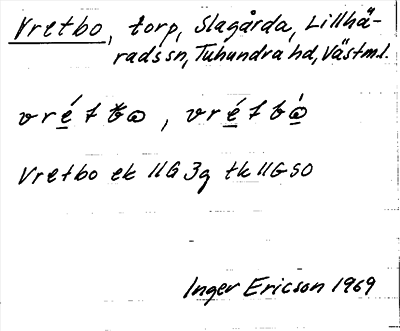 Vretbo, torp, Slagårda, Lillhä-
rads sn, Tuhundra hd, Västml.
vrét bω, vrét bώ
Vretbo ek 11G 3g tk 11G SO
Inger Ericson 1969